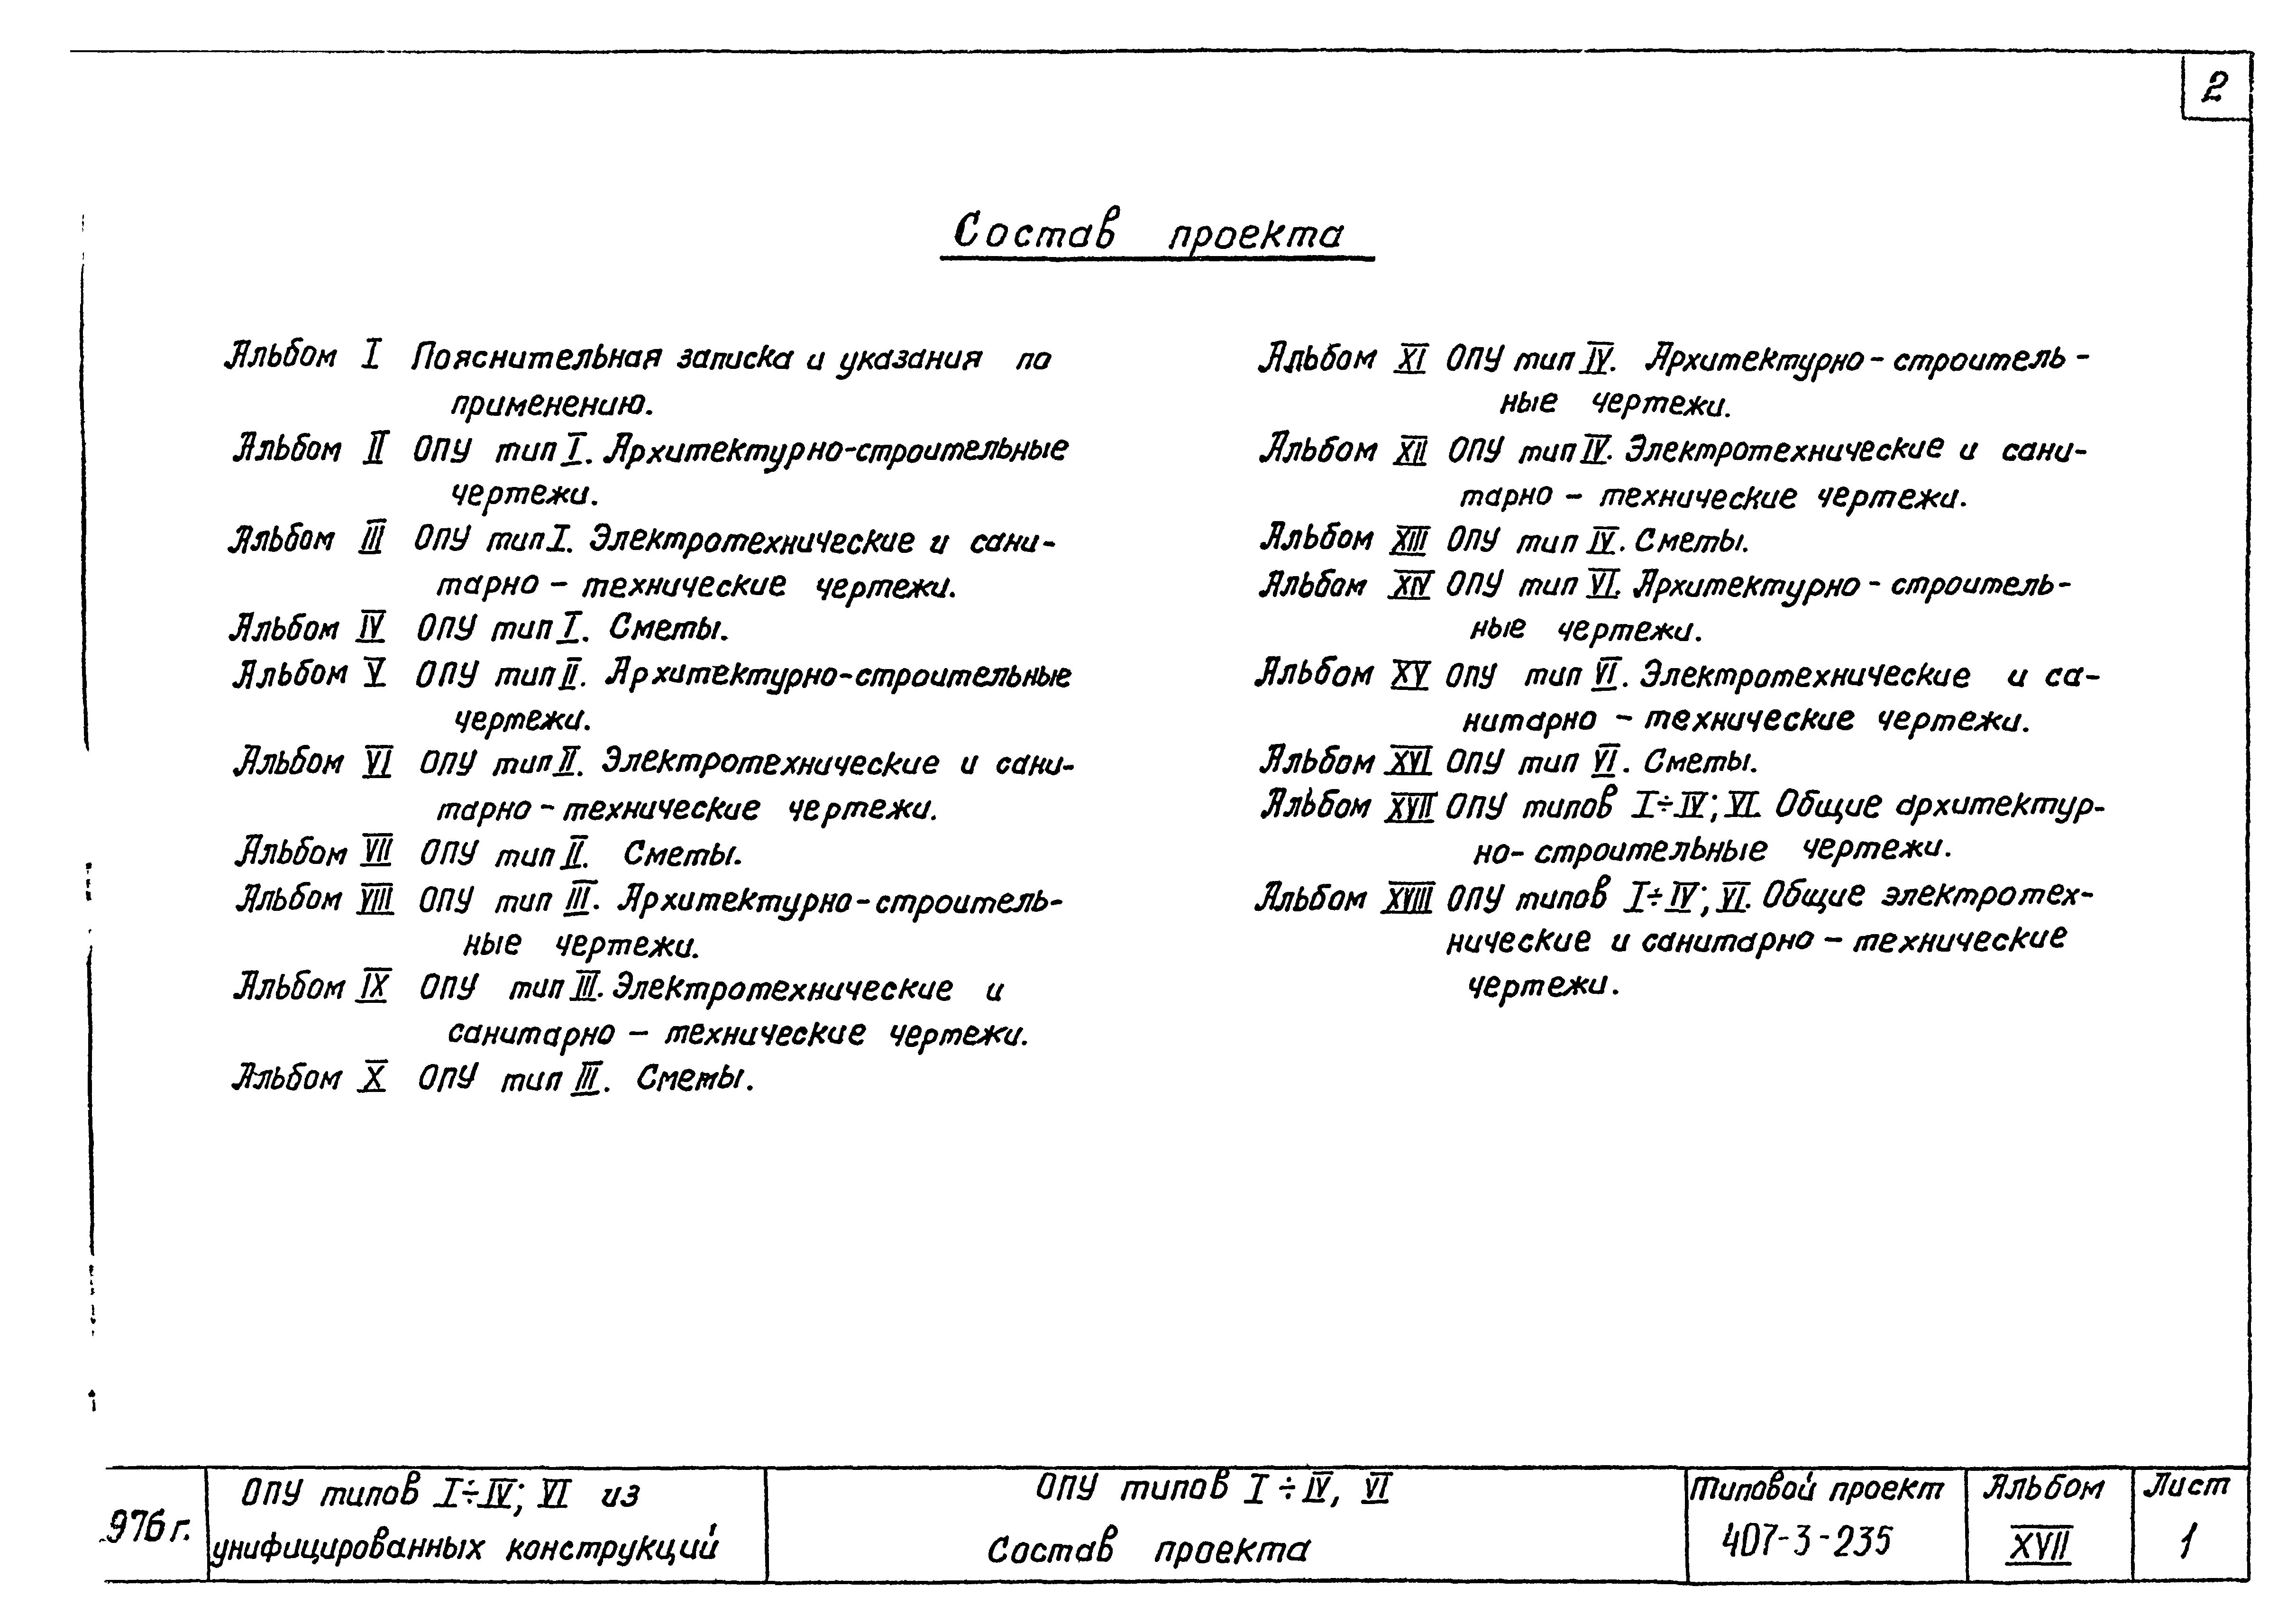 2
Состав проекта
Альбом I ОПУ Пояснительная записка и указания по
применению.
Альбом II ОПУ тип I. Архитектурно-строительные
чертежи.
Альбом III ОПУ тип I. Электротехнические и сани-
тарно - технические чертежи.
Альбом IV ОПУ тип I. Сметы.
Альбом V ОПУ тип II. Архитектурно-строительные
чертежи.
Альбом VI ОПУ тип II. Электротехнические и сани-
тарно - технические чертежи.
Альбом VII ОПУ тип II. Сметы.
Альбом VIII ОПУ тип III. Архитектурно-строитель-
ные чертежи.
Альбом IX ОПУ тип III. Электротехнические и
санитарно - технические чертежи.
Альбом X ОПУ тип III. Сметы.
Альбом XI ОПУ тип IV. Архитектурно-строитель-
ные чертежи.
Альбом XII ОПУ тип IV. Электротехнические и сани-
тарно - технические чертежи.
Альбом XIII ОПУ тип IV. Сметы.
Альбом XIV ОПУ тип VI. Архитектурно-строитель-
ные чертежи.
Альбом XV ОПУ тип VI. Электротехнические и са-
нитарно - технические чертежи.
Альбом XVI ОПУ тип VI. Сметы.
Альбом XVII ОПУ типов I÷IV; VI. Общие архитектур-
но-строительные чертежи.
Альбом XVIII ОПУ типов I÷IV; VI. Общие электротех-
нические и санитарно - технические
чертежи.
976 г.
ОПУ типов I÷IV; VI из
унифицированных конструкций
ОПУ типов I÷IV, VI
Состав проекта
Типовой проект
407-3-235
Альбом
XVII
Лист
1